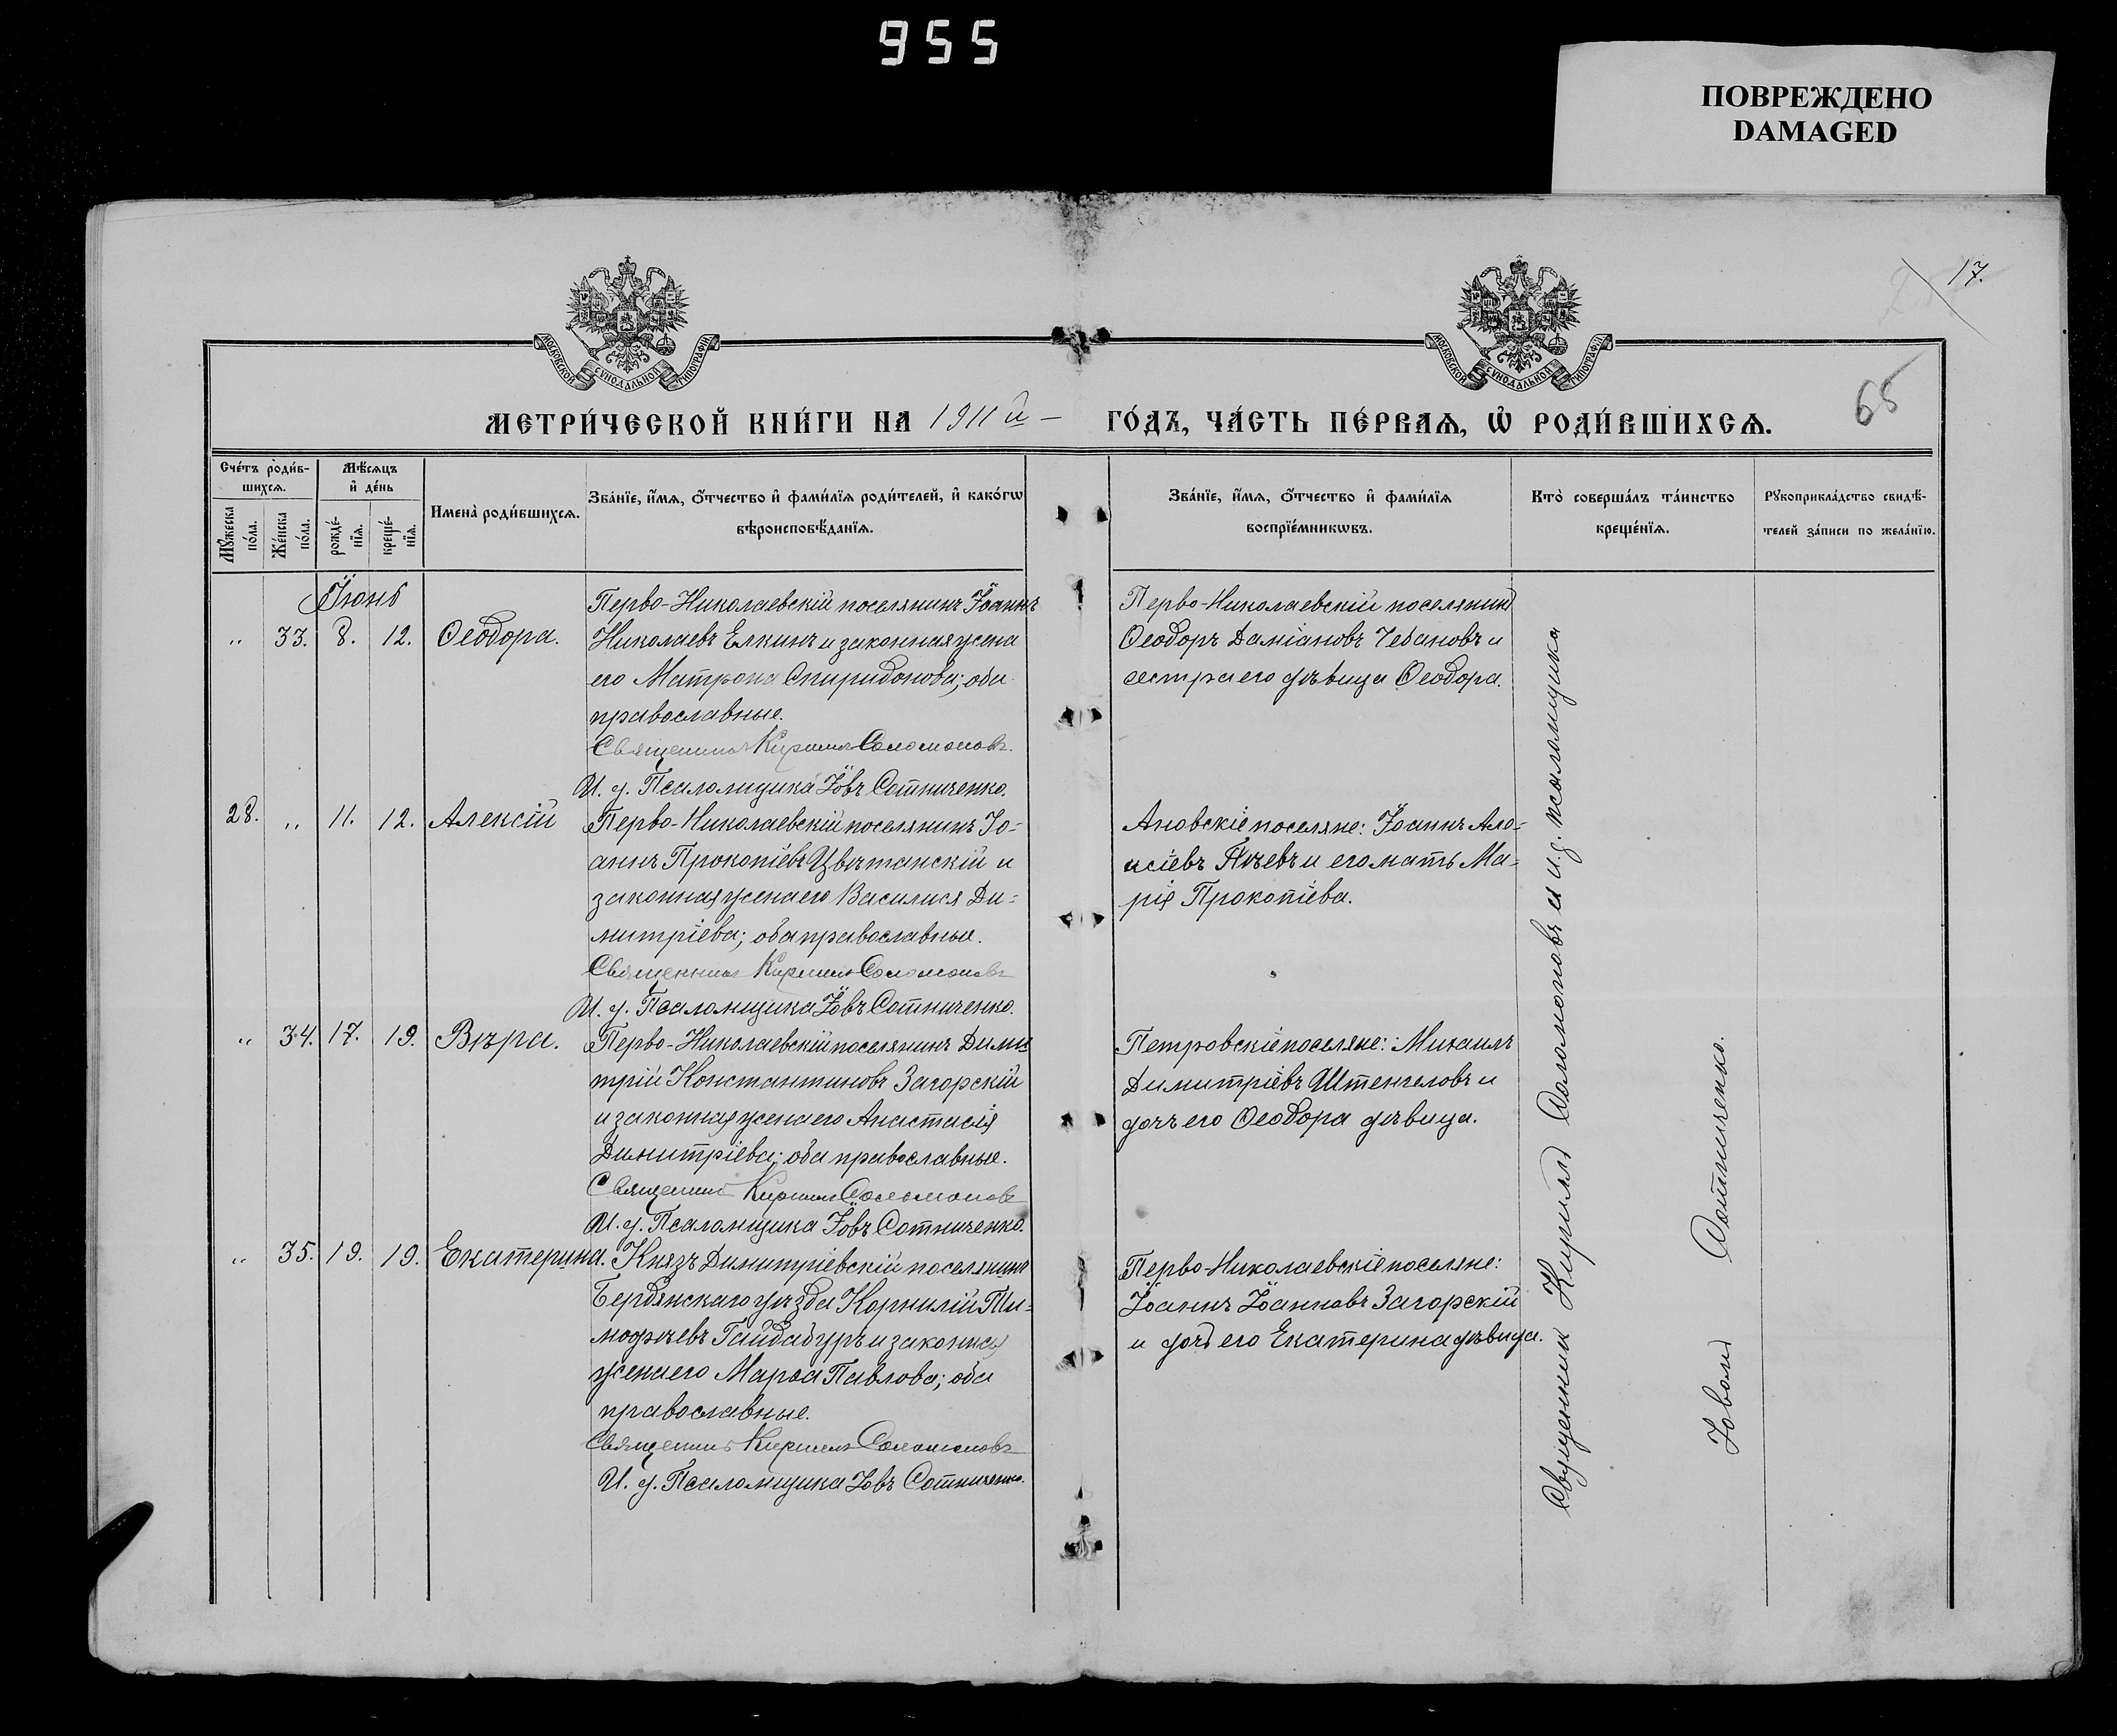 955
ПОВРЕЖДЕНО
DAMAGED
17.
65
МОСКОВСКОЙ СѴНОДАЛЬНОЙ ТИПОГРАФІИ
МОСКОВСКОЙ СѴНОДАЛЬНОЙ ТИПОГРАФІИ
МЕТРИ́ЧЕСКОЙ КНИ́ГИ НА 1911й —
ГО́ДЪ, ЧА́СТЬ ПЕ́РВАѦ, Ѡ҆ РОДИ́ВШИХСѦ.
Сче́тъ роди́в-
шихсѧ.
Мѣ́сѧцъ
и҆ де́нь
Мꙋ́жеска
по́ла.
Же́нска
по́ла.
рожде́-
нїѧ.
креще́-
нїѧ.
Имена̀ роди́вшихсѧ.
Зва́нїе, и҆́мѧ, ѻ҆́тчество и҆ фами́лїѧ роди́телей, и҆ како́гѡ
вѣроисповѣ́данїѧ.
Зва́нїе, и҆́мѧ, ѻ҆́тчество и҆ фами́лїѧ
воспрїе́мникѡвъ.
Кто̀ соверша́лъ та́инство
креще́нїѧ.
Рꙋкоприкла́дство свидѣ́-
телей за́писи по жела́нїю.
Іюнь
„ 33. 8. 12. Ѳеодора.
Перво-Николаевскій поселянинъ Іоаннъ
Николаевъ Елкинъ и законная жена
его Матрона Спиридонова; оба
православные.
Священникъ Кириллъ Соломоновъ.
И. д. Псаломщика Іовъ Сотниченко.
Перво-Николаевскій поселянинъ
Ѳеодоръ Даміановъ Чебановъ и
сестра его дѣвица Ѳеодора.
28. „ 11. 12. Алексій
Перво-Николаевскій поселянинъ Іо-
аннъ Прокопіевъ Цвѣтанскій и
законная жена его Василися Ди-
митріева; оба православные.
Священникъ Кириллъ Соломоновъ
И. д. Псаломщика Іовъ Сотниченко.
поселяне: Іоаннъ
и его мать Ма-
рія Прокопіева.
„ 34. 17. 19. Вѣра.
Перво-Николаевскій поселянинъ Дими
трій Константиновъ Загорскій
и законная жена его Анастасія
Димитріева; оба православные.
Священникъ Кириллъ Соломоновъ
И. д. Псаломщика Іовъ Сотниченко.
Петровскіе поселяне: Михаилъ
Димитріевъ Штенгеловъ и
дочь его Ѳеодора дѣвица.
„ 35. 19. 19. Екатерина.
Князь Димитріевскій поселянинъ
Бердянскаго уѣзда Корнилій Ти-
мофѣевъ Гайдабуръ и законная
жена его Марѳа Павлова; оба
православные.
Священникъ Кириллъ Соломоновъ
И. д. Псаломщика Іовъ Сотниченко.
Перво-Николаевскіе поселяне:
Іоаннъ Іоанновъ Загорскій
и дочь его Екатерина дѣвица.
Священник Кирилл Соломоновъ и и. д. псаломщика
Іовом Сотниченко.